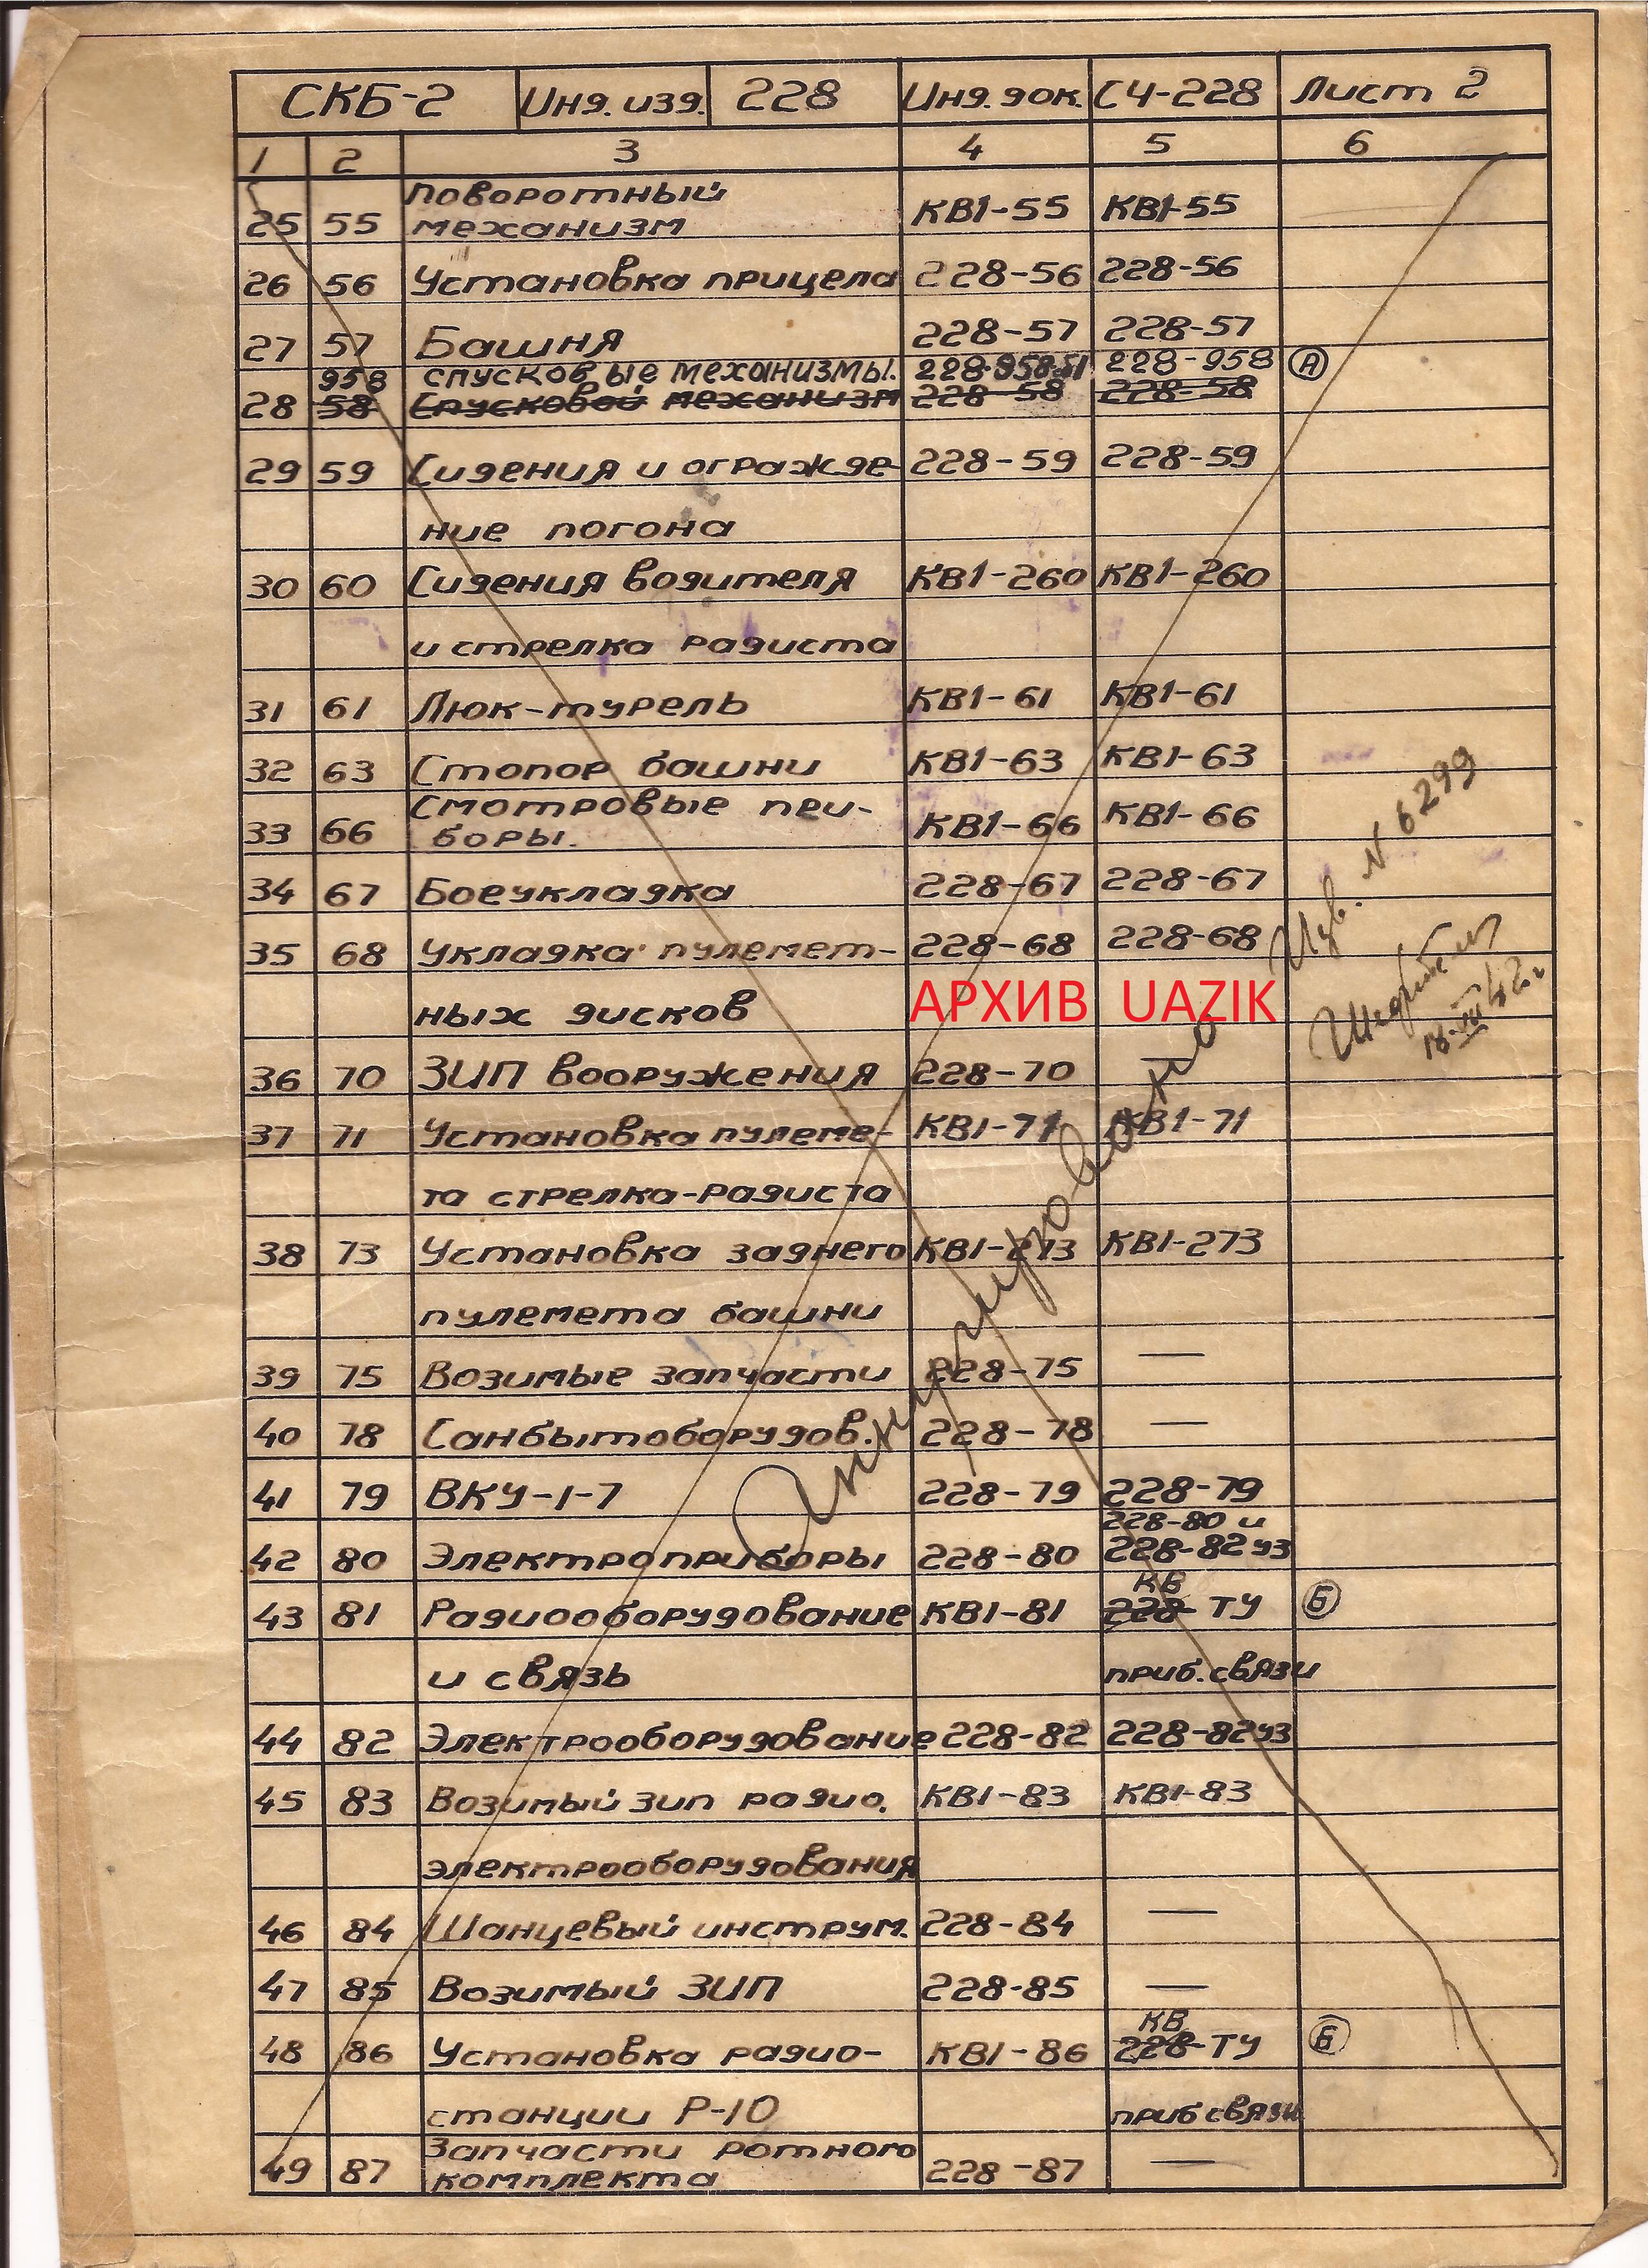 СКБ-2 Инд. изд. 228 Инд. док. СЧ-228 Лист 2
1 2 3 4 5 6
поворотный
25 55 механизм КВ1-55 КВ1-55
26 56 Установка прицела 228-56 228-56
27 57 Башня 228-57 228-57
958 спусковые механизмы. 228-958-51 228-958 А
28 58 Спусковой механизм 228-58 228-58
29 59 Сидения и огражде- 228-59 228-59
ние погона
30 60 Сидения водителя КВ1-260 КВ1-260
и стрелка радиста
31 61 Люк-турель КВ1-61 КВ1-61
32 63 Стопор башни КВ1-63 КВ1-63
Смотровые при-
33 66 боры. КВ1-66 КВ1-66
34 67 Боеукладка 228-67 228-67
35 68 Укладка пулемет- 228-68 228-68
ных дисков
АРХИВ UAZIK
N 6299
36 70 ЗИП вооружения 228-70 —
37 71 Установка пулеме- КВ1-71 КВ1-71
та стрелка-радиста
38 73 Установка заднего КВ1-273 КВ1-273
пулемета башни
39 75 Возимые запчасти 228-75 —
40 78 Санбытоборудов. 228-78 —
41 79 ВКУ-1-7 228-79 228-79
228-80 и
42 80 Электроприборы 228-80 228-82уз
КВ
43 81 Радиооборудование КВ1-81 228-ТУ Б
и связь приб. связи
44 82 Электрооборудование 228-82 228-82уз
45 83 Возимый зип радио. КВ1-83 КВ1-83
электрооборудования
46 84 Шанцевый инструм. 228-84 —
47 85 Возимый ЗИП 228-85 —
КВ
48 86 Установка радио- КВ1-86 228-ТУ Б
станции Р-10 приб связи
Запчасти ротного
49 87 комплекта 228-87 —
Аннулировано